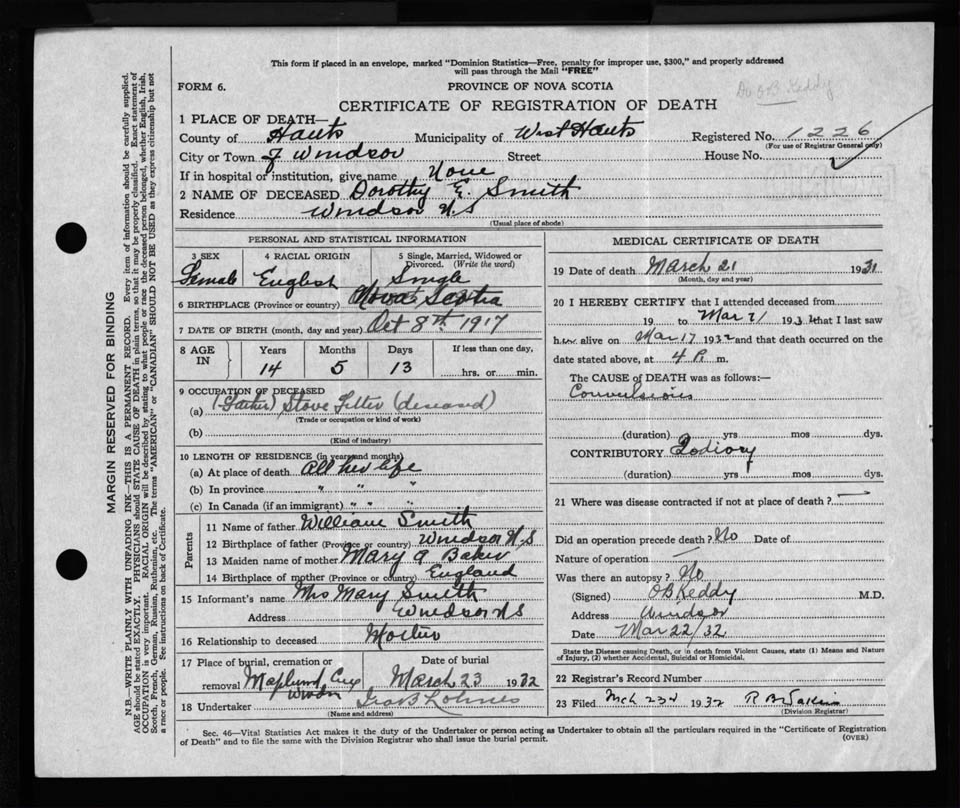 This form if placed in an envelope, marked "Dominion Statistics—Free, penalty for improper use, $300," and properly addressed
will pass through the Mail "FREE"
FORM 6.
PROVINCE OF NOVA SCOTIA
Keddy
CERTIFICATE OF REGISTRATION OF DEATH
1 PLACE OF DEATH—
County of Hants Municipality of West Hants Registered No. 1226
(For use of Registrar General only)
City or Town of Windsor Street House No.
If in hospital or institution, give name None
2 NAME OF DECEASED Dorothy E. Smith
Residence Windsor N.S
(Usual place of abode)
PERSONAL AND STATISTICAL INFORMATION
3 SEX 4 RACIAL ORIGIN 5 Single, Married, Widowed or
Divorced. (Write the word)
Female English Single
6 BIRTHPLACE (Province or country) Nova Scotia
7 DATE OF BIRTH (month, day and year) Oct 8th 1917
8 AGE IN Years Months Days If less than one day,
14 5 13 hrs. or min.
9 OCCUPATION OF DECEASED
(a) (Father) Stove Fitter (deceased)
(Trade or occupation or kind of work)
(b)
(Kind of industry)
10 LENGTH OF RESIDENCE (in years and months)
(a) At place of death All her life
(b) In province " " "
(c) In Canada (if an immigrant) " " "
Parents
11 Name of father William Smith
12 Birthplace of father (Province or country) Windsor N.S
13 Maiden name of mother Mary A Baker
14 Birthplace of mother (Province or country) England
15 Informant's name Mrs Mary Smith
Address Windsor NS
16 Relationship to deceased Mother
17 Place of burial, cremation or Date of burial
removal March 23 1932
18 Undertaker
(Name and address)
MEDICAL CERTIFICATE OF DEATH
19 Date of death March 21 1931
(Month, day and year)
20 I HEREBY CERTIFY that I attended deceased from
19 to Mar 21 193 that I last saw
her alive on Mar 17 1932 and that death occurred on the
date stated above, at 4 P. m.
The CAUSE of DEATH was as follows:—
Convulsions
(duration) yrs mos dys.
CONTRIBUTORY
(duration) yrs. mos. dys.
21 Where was disease contracted if not at place of death? —
Did an operation precede death? No Date of
Nature of operation —
Was there an autopsy? No
(Signed) O B Keddy M.D.
Address Windsor
Date Mar 22/32
State the Disease causing Death, or in death from Violent Causes, state (1) Means and Nature
of Injury, (2) whether Accidental, Suicidal or Homicidal.
22 Registrar's Record Number
23 Filed Mch 23rd 1932
(Division Registrar)
Sec. 46—Vital Statistics Act makes it the duty of the Undertaker or person acting as Undertaker to obtain all the particulars required in the "Certificate of Registration
of Death" and to file the same with the Division Registrar who shall issue the burial permit.
(OVER)
MARGIN RESERVED FOR BINDING
N.B.—WRITE PLAINLY WITH UNFADING INK—THIS IS A PERMANENT RECORD. Every item of information should be carefully supplied.
AGE should be stated EXACTLY. PHYSICIANS should STATE CAUSE OF DEATH in plain terms, so that it may be properly classified. Exact statement of
OCCUPATION is very important. RACIAL ORIGIN will be described by stating to what people or race the deceased person belonged, whether English, Irish,
Scotch, French, German, Russian, Ruthenian, etc. The terms "AMERICAN" or "CANADIAN" SHOULD NOT BE USED as they express citizenship but not
a race or people. See instructions on back of Certificate.